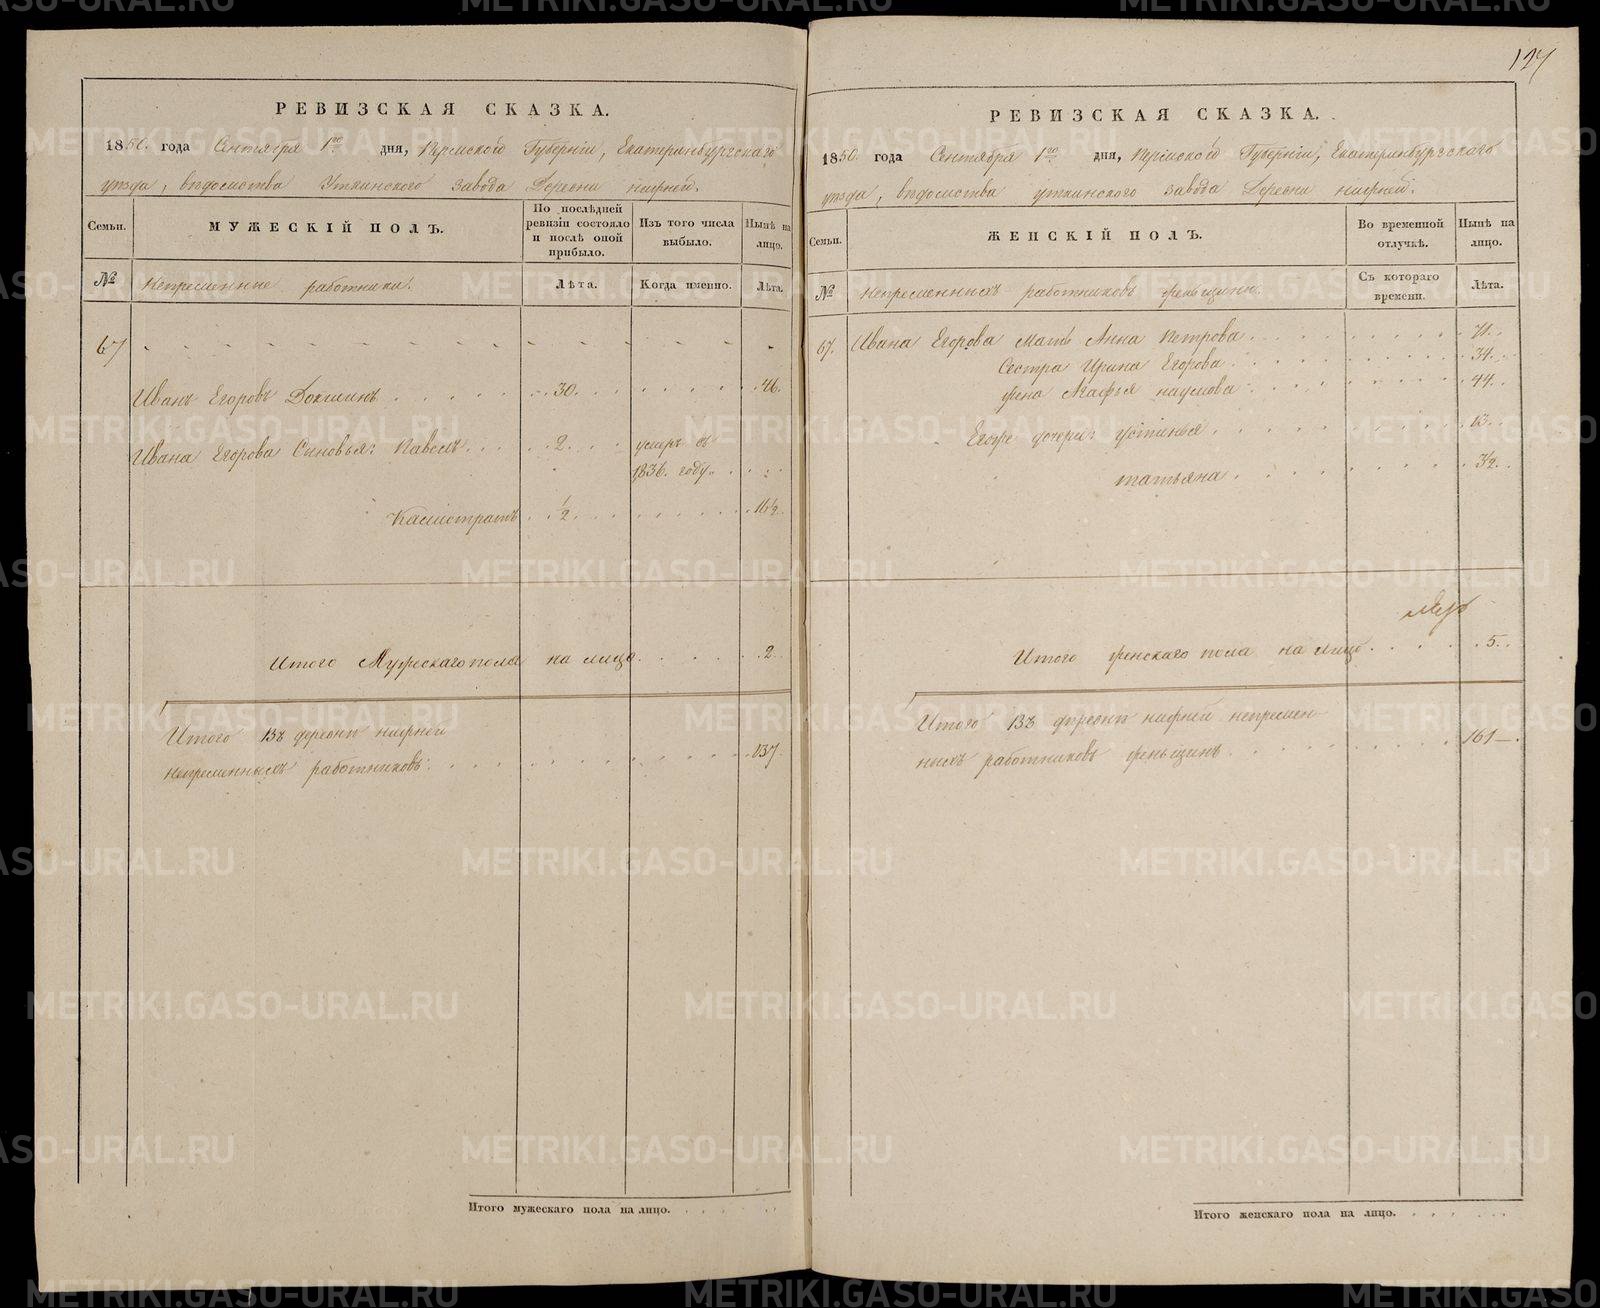 127
РЕВИЗСКАЯ СКАЗКА.
1850. года Сентября 1го дня, Пермской Губернии, Екатеринбургскаго
уезда, ведомства Уткинского завода Деревни нижней.
Семьи.
МУЖЕСКІЙ ПОЛЪ.
По послѣдней ревизіи состояло и послѣ оной прибыло.
Изъ того числа выбыло.
Нынѣ на лицо.
№
Непременные работники.
Лѣта.
Когда именно.
Лѣта.
67
Иванъ Егоровъ . . . . . 30. . . . . . . . 46.
Ивана Егорова Сыновья: Павелъ . . . 2. . . . умеръ въ
1836. году . . .
Калистратъ . . 1/2 . . . . . . . . 16 1/2.
Итого Мужескаго пола на лицо . . . . . 2.
Итого въ деревне нижней
непременныхъ работниковъ . . . . . . . . . . . 137.
Итого мужескаго пола на лицо. . . . . . .
РЕВИЗСКАЯ СКАЗКА.
1850. года Сентября 1го дня, Пермской Губернии, Екатеринбургскаго
уезда, ведомства уткинского завода Деревни нижней.
Семьи.
ЖЕНСКІЙ ПОЛЪ.
Во временной отлучкѣ.
Нынѣ на лицо.
№
Непременныхъ работниковъ женьщинъ.
Съ котораго времени.
Лѣта.
67. Ивана Егорова мать Анна Петрова . . . . . . . . . 71.
Сестра Ирина Егорова . . . . . . . . . . 34.
жена Агафья наумова . . . . . . . . . 44.
Егоже дочери: устинья . . . . . . . . . . . 13.
татьяна . . . . . . . . . . 3 1/2.
Итого женскаго пола на лицо . . . . . 5.
Итого въ деревне нижней непремен-
ныхъ работниковъ женьщинъ . . . . . . . . . . 161
Итого женскаго пола на лицо. . . . . . .
METRIKI.GASO-URAL.RU